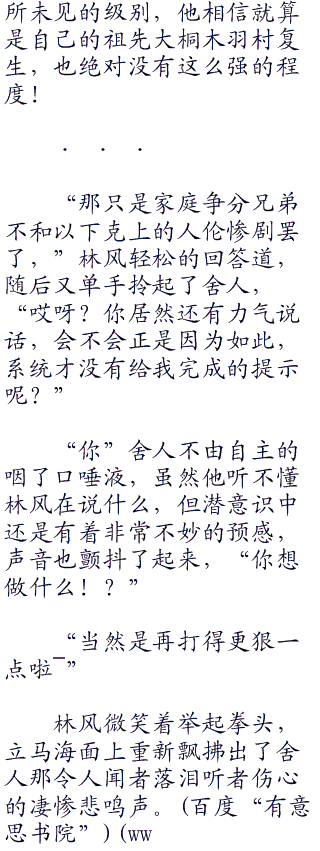 所未见的级别，他相信就算
是自己的祖先大桐木羽村复
生，也绝对没有这么强的程
度！
． ． ．
“那只是家庭争分兄弟
不和以下克上的人伦惨剧罢
了，”林风轻松的回答道，
随后又单手拎起了舍人，
“哎呀？你居然还有力气说
话，会不会正是因为如此，
系统才没有给我完成的提示
呢？”
“你”舍人不由自主的
咽了口唾液，虽然他听不懂
林风在说什么，但潜意识中
还是有着非常不妙的预感，
声音也颤抖了起来，“你想
做什么！？”
“当然是再打得更狠一
点啦¯”
林风微笑着举起拳头，
立马海面上重新飘拂出了舍
人那令人闻者落泪听者伤心
的凄惨悲鸣声。(百度“有意
思书院”)(ww